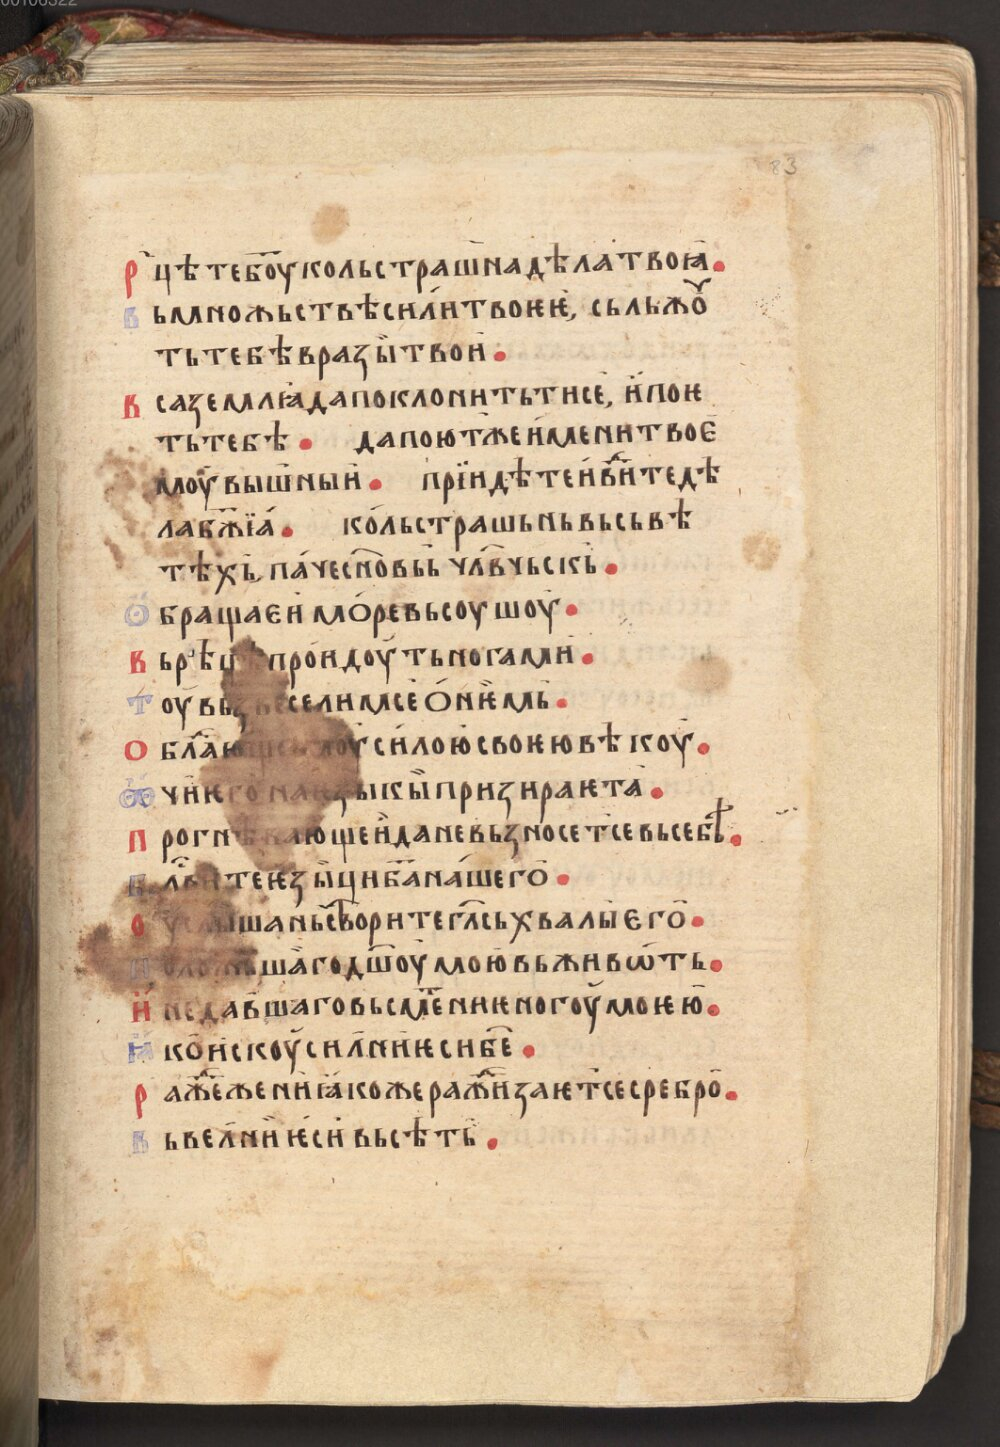 00106322
83
Рцѣ те б҃оу коль страшна дѣла твоꙗ
Вь множьствѣ сили твоѥѥ, сьльжоу
ть тебѣ врази твои
Вса землꙗ да поклонить ти се, и пои
ть тебѣ да поют же имени твоѥ
моу вышныи прїидѣте и види те дѣ
ла б҃жїꙗ коль страшьнь вь сьвѣ
тѣхь, паче с҃новьь чл҃вчьскь
Ѻбращаеи море вь соушоу
Вь рѣцѣ проидоуть ногами
Тоу вьзвеселим се ѻ нѥмь
Ѻбладающомоу силою своѥю вѣкоу
Ꙭчи ѥго на ѥзыкы призираѥта
Прогнѣвающеи да не вьзносет се вь себѣ
Бл҃вите ѥзыци б҃а нашего
Оуслышань створите глс҃ь хвалы его
Положьшаго дш҃оу мою вь живѡть
И не давшаго вь смѣтениѥ ногоу моѥю
Ꙗко искоусил ни ѥси б҃е
Ражеже ни ꙗкоже ражизаѥт се сребро
Вьвел ни ѥси вь сѣть